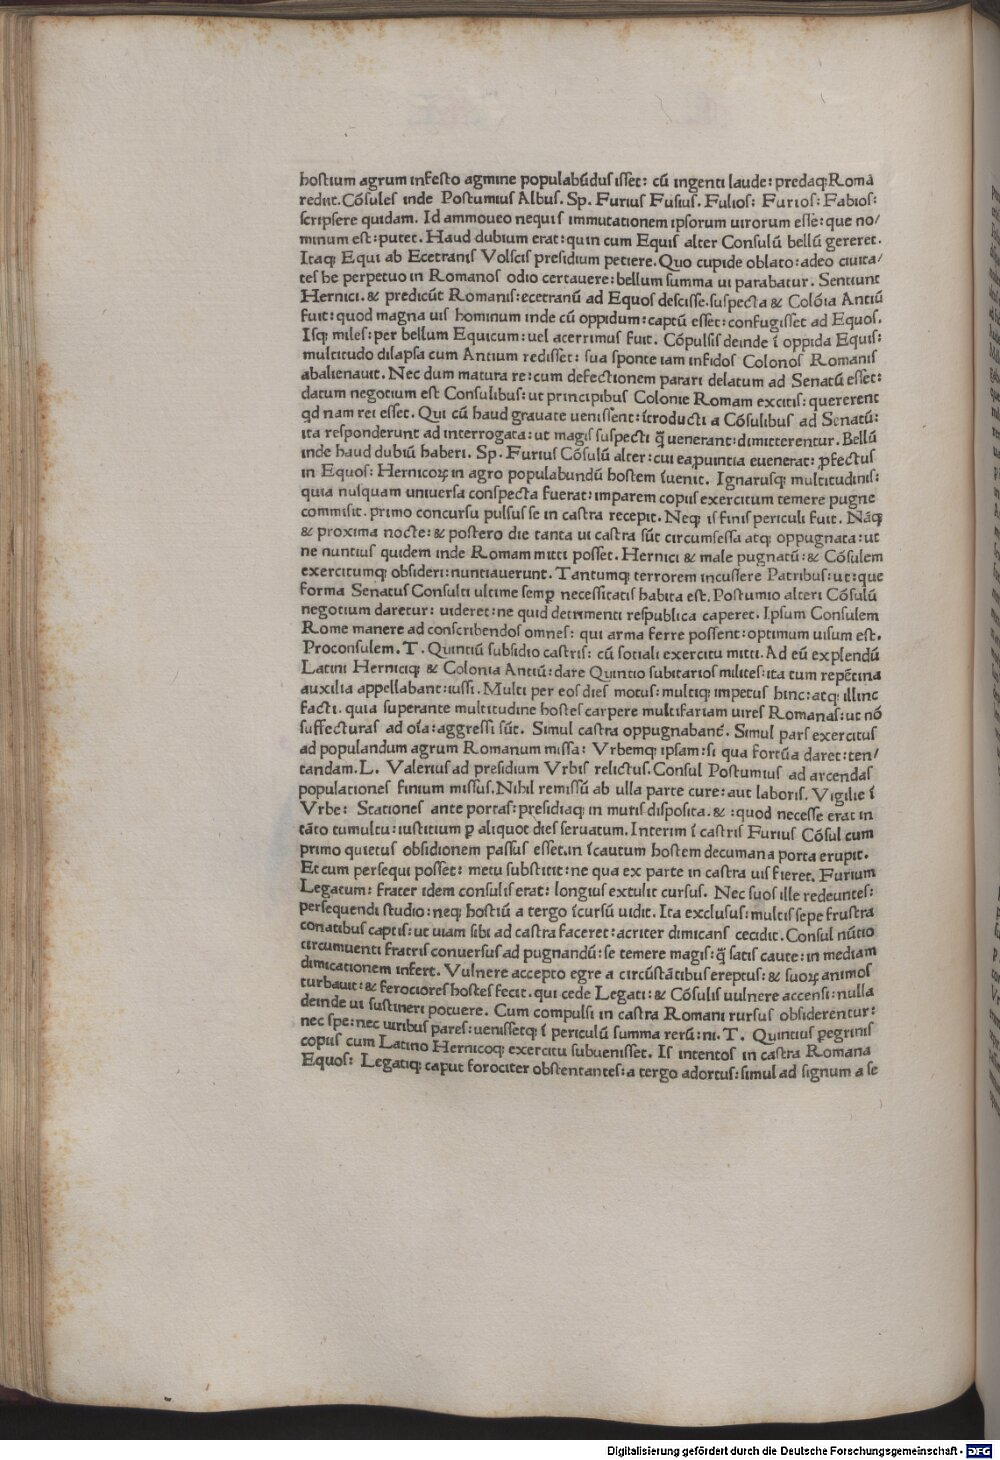 hostium agrum infesto agmine populabūdus isset: cū ingenti laude: predaq; Romā
rediit. Cōsules inde Postumius Albus. Sp. Furius Fusius. Fulios: Furios: Fabios:
scripsere quidam. Id ammoueo nequis immutationem ipsorum uirorum esse: que no/
minum est: putet. Haud dubium erat: quin cum Equis alter Consulū bellū gereret.
Itaq; Equi ab Ecetranis Volscis presidium petiere. Quo cupide oblato: adeo ciuita/
tes he perpetuo in Romanos odio certauere: bellum summa ui parabatur. Sentiunt
Hernici. & predicūt Romanis: ecetranū ad Equos descisse. suspecta & Colōia Antiū
fuit: quod magna uis hominum inde cū oppidum: captū esset: confugisset ad Equos.
Isq; miles: per bellum Equicum: uel acerrimus fuit. Cōpulsis deinde ī oppida Equis:
multitudo dilapsa cum Antium redisset: sua sponte iam infidos Colonos Romanis
abalienauit. Nec dum matura re: cum defectionem parari delatum ad Senatū esset:
datum negotium est Consulibus: ut principibus Colonie Romam excitis: quererent
qd nam rei esset. Qui cū haud grauate uenissent: ītroducti a Cōsulibus ad Senatū:
ita responderunt ad interrogata: ut magis suspecti q̄ uenerant: dimitterentur. Bellū
inde haud dubiū haberi. Sp. Furius Cōsulū alter: cui ea ꝓuintia euenerat: ꝓfectus
in Equos: Hernicoꝝ in agro populabundū hostem īuenit. Ignarusq; multitudinis:
quia nusquam uniuersa conspecta fuerat: imparem copiis exercitum temere pugne
commisit. primo concursu pulsus se in castra recepit. Neq; is finis periculi fuit. Nāq;
& proxima nocte: & postero die tanta ui castra sūt circumsessa atq; oppugnata: ut
ne nuntius quidem inde Romam mitti posset. Hernici & male pugnatū: & Cōsulem
exercitumq; obsideri: nuntiauerunt. Tantumq; terrorem incussere Patribus: ut: que
forma Senatus Consulti ultime semꝑ necessitatis habita est. Postumio alteri Cōsulū
negotium daretur: uideret: ne quid detrimenti respublica caperet. Ipsum Consulem
Rome manere ad conscribendos omnes: qui arma ferre possent: optimum uisum est.
Proconsulem. T. Quintiū subsidio castris: cū sotiali exercitu mitti. Ad eū explendū
Latini Herniciq; & Colonia Antiū: dare Quintio subitarios milites: ita tum repētina
auxilia appellabant: iussi. Multi per eos dies motus: multiq; impetus hinc: atq; illinc
facti. quia superante multitudine hostes carpere multifariam uires Romanas: ut nō
suffecturas ad oīa: aggressi sūt. Simul castra oppugnabant̄. Simul pars exercitus
ad populandum agrum Romanum missa: Vrbemq; ipsam: si qua fortūa daret: ten/
tandam. L. Valerius ad presidium Vrbis relictus. Consul Postumius ad arcendas
populationes finium missus. Nihil remissū ab ulla parte cure: aut laboris. Vigilie ī
Vrbe: Stationes ante portas: presidiaq; in muris disposita. & : quod necesse erat in
tāto tumultu: iustitium ꝑ aliquot dies seruatum. Interim ī castris Furius Cōsul cum
primo quietus obsidionem passus esset. in īcautum hostem decumana porta erupit.
Et cum persequi posset: metu substitit: ne qua ex parte in castra uis fieret. Furium
Legatum: frater idem consulis erat: longius extulit cursus. Nec suos ille redeuntes:
persequendi studio: neq; hostiū a tergo īcursū uidit. Ita exclusus: multis sepe frustra
conatibus captis: ut uiam sibi ad castra faceret: acriter dimicans cecidit. Consul nūtio
circumuenti fratris conuersus ad pugnandū: se temere magis: q̄ satis caute: in mediam
dimicationem infert. Vulnere accepto egre a circūstātibus ereptus: & suoꝝ animos
turbauit: & ferociores hostes fecit. qui cede Legati: & Cōsulis uulnere accensi: nulla
deinde ui sustineri potuere. Cum compulsi in castra Romani rursus obsiderentur:
nec spe: nec uiribus pares: uenissetq; ī periculū summa rerū: ni. T. Quintius ꝑegrinis
copiis cum Latino Hernicoq; exercitu subuenisset. Is intentos in castra Romana
Equos: Legatiq; caput forociter obstentantes: a tergo adortus: simul ad signum a se
Digitalisierung gefördert durch die Deutsche Forschungsgemeinschaft - DFG